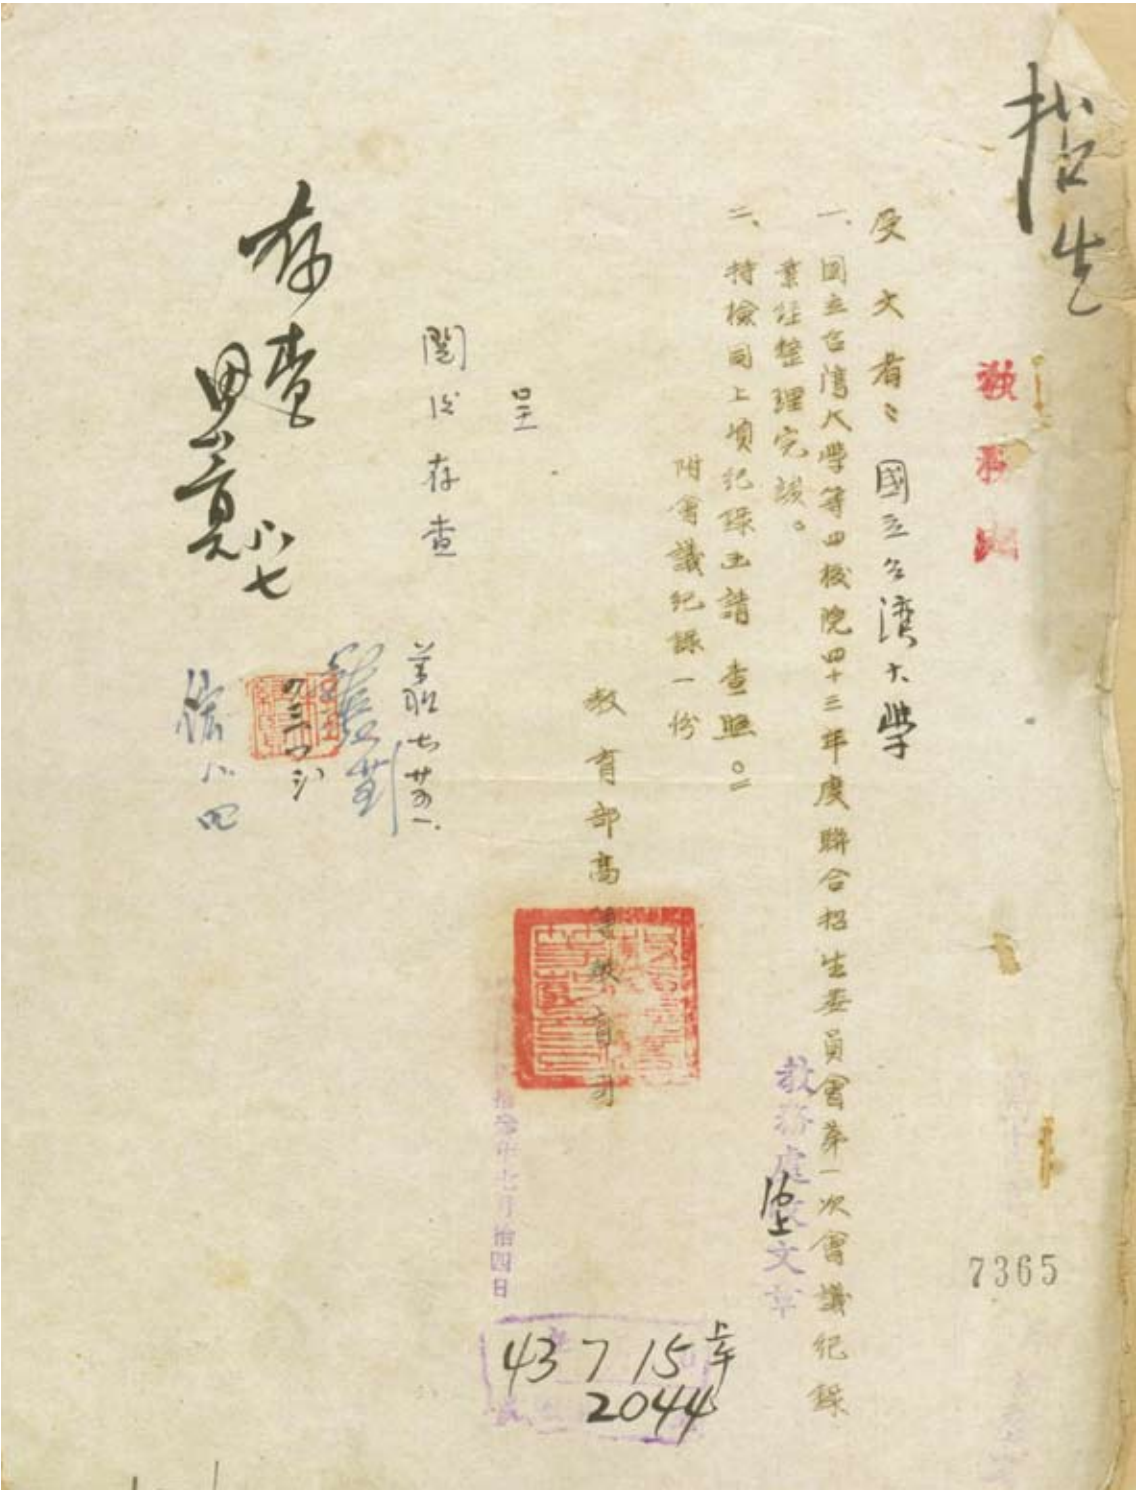 招生
教務處
受文者：國立台湾大學
一、國立台灣大學等四校院四十三年度聯合招生委員會第一次會議紀錄
業經整理完竣。
二、特檢同上項紀錄函請 查照。
附會議紀錄一份
教育部高等教育司
呈
閱后存查
存查
思亮
八七
八四
拾參年七月拾四日
教務處收文章
7365
43 7 15
2044